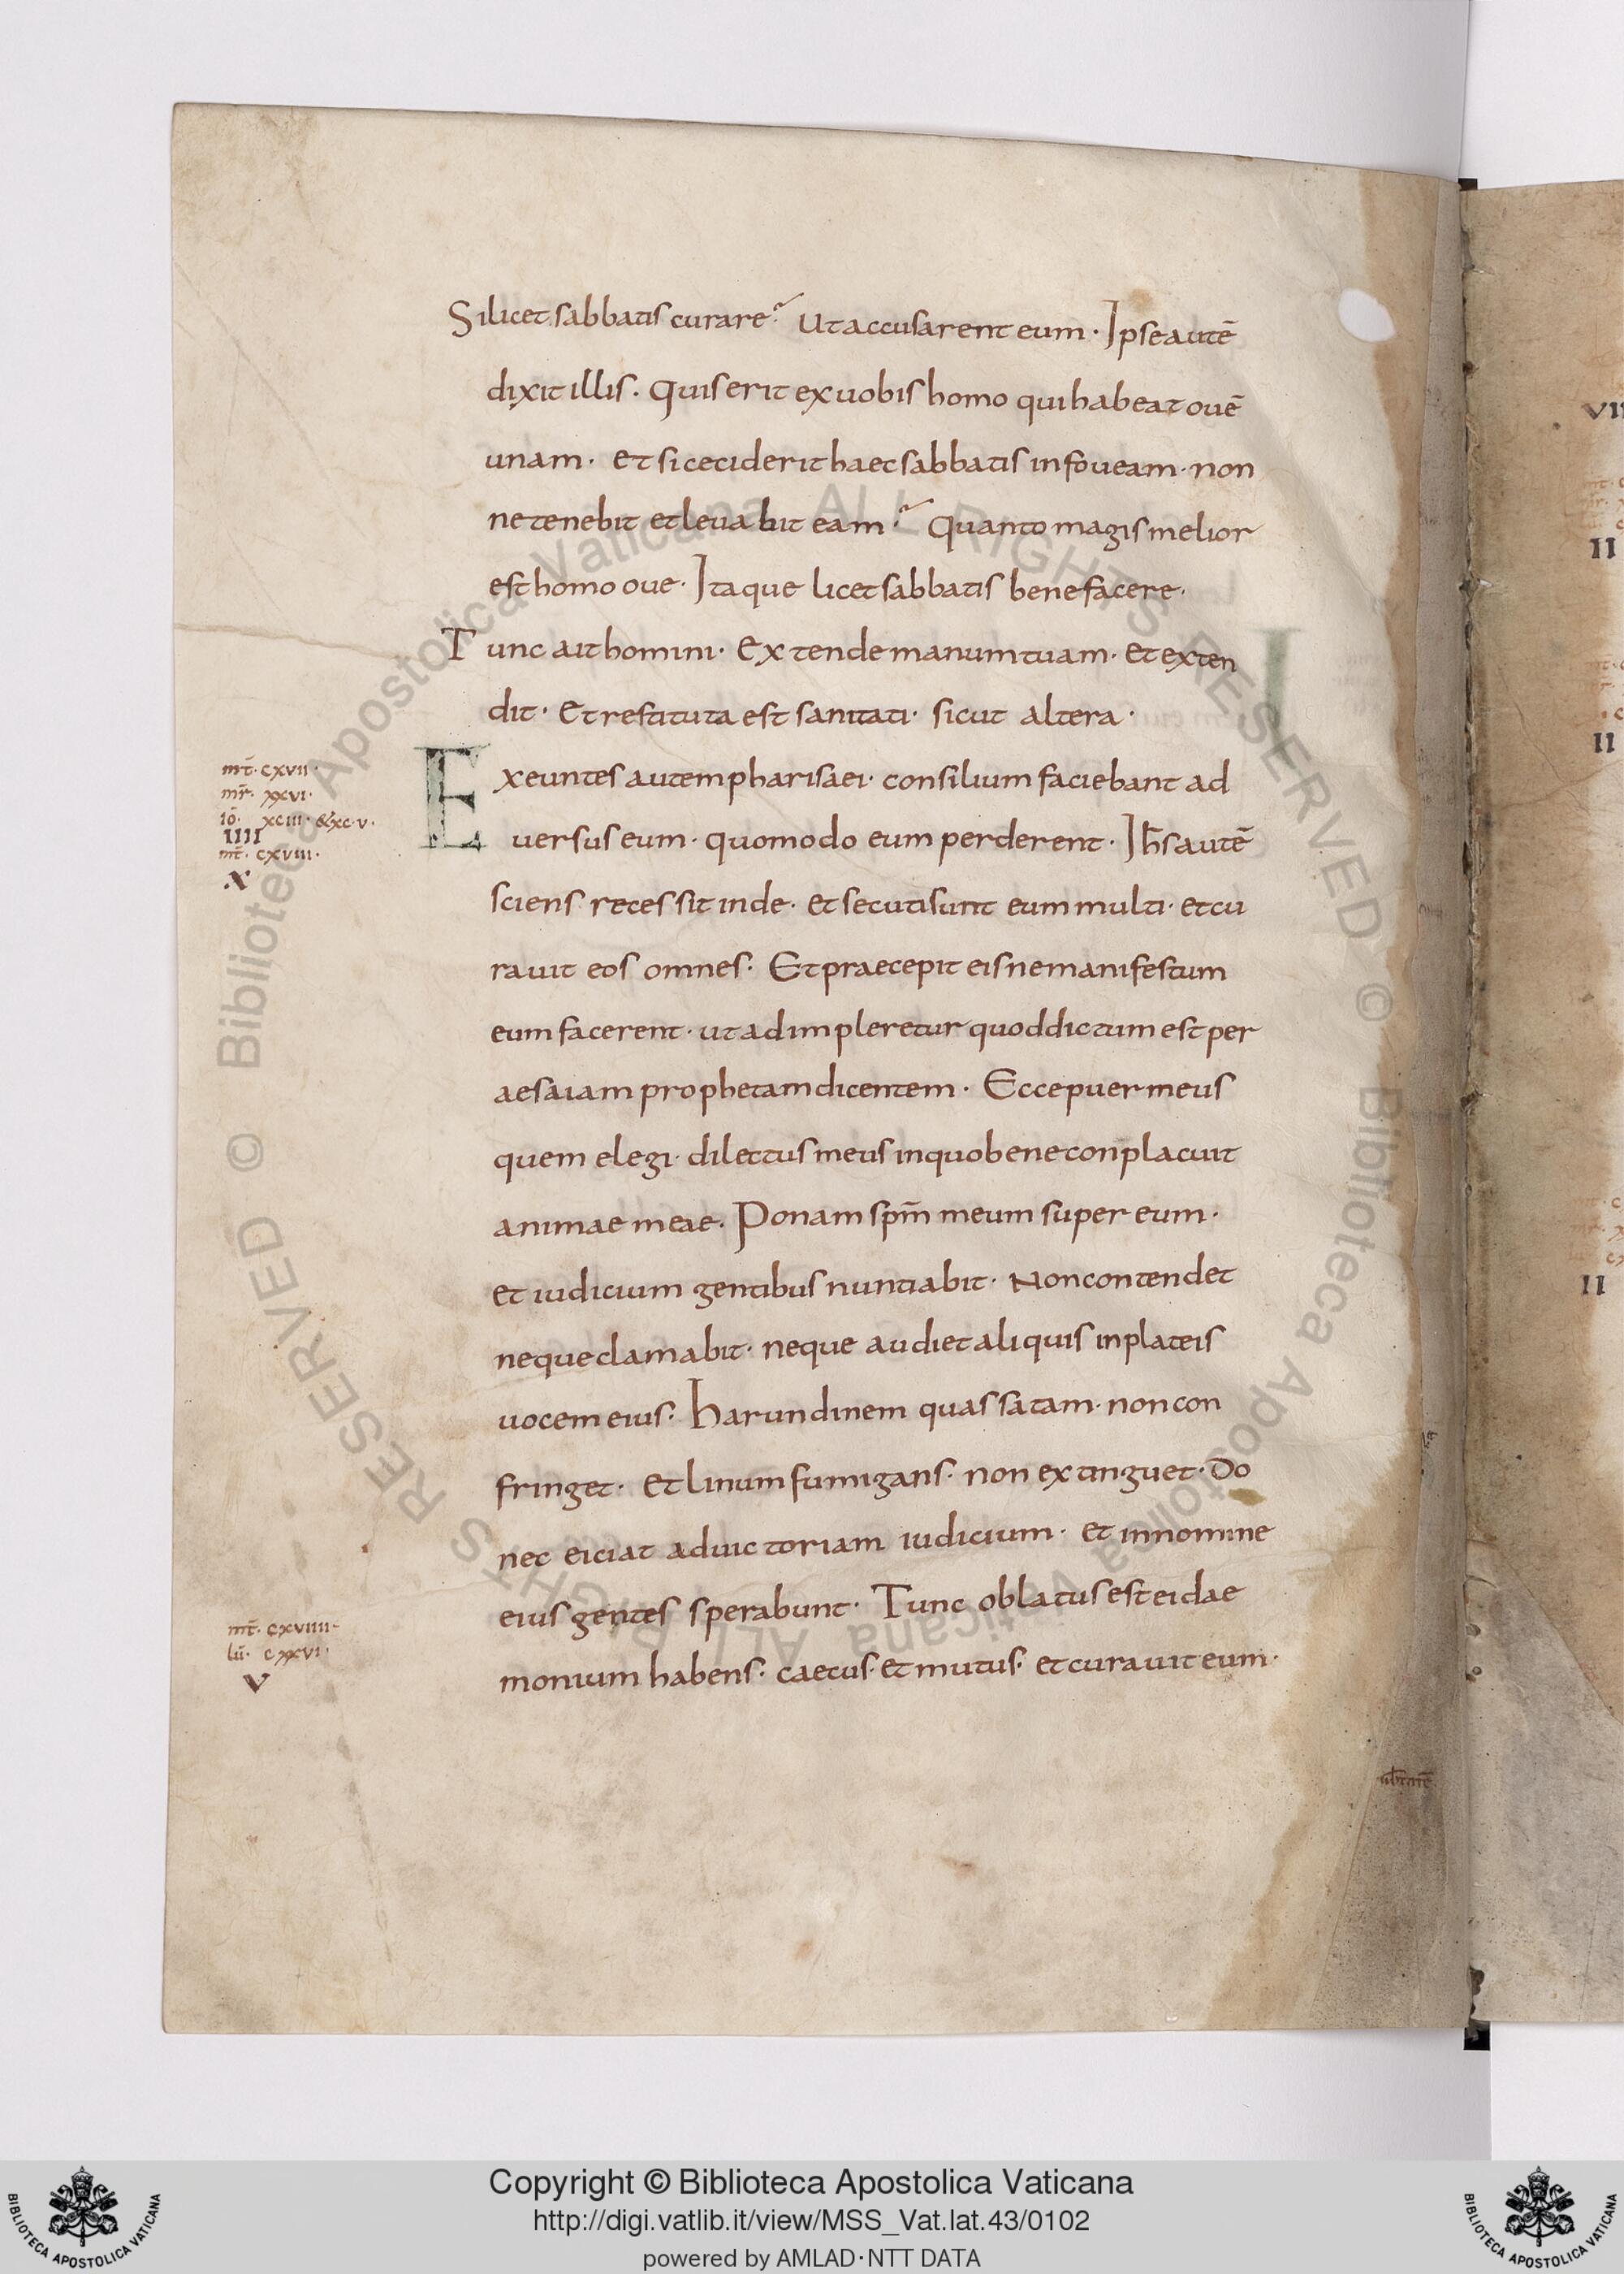 Si licet sabbatis curare? Ut accusarent eum· Ipse autē
dixit illis· Quis erit ex uobis homo qui habeat ouē
unam· et si ceciderit haec sabbatis in foueam· non
ne tenebit et leuabit eam? Quanto magis melior
est homo oue· Itaque licet sabbatis benefacere·
Tunc ait homini· Extende manum tuam· et exten
dit· Et restituta est sanitati· sicut altera·
Exeuntes autem pharisaei· consilium faciebant ad
uersus eum· quomodo eum perderent· Ihs autē
sciens recessit inde· et secuti sunt eum multi· et cu
rauit eos omnes· Et praecepit eis ne manifestum
eum facerent· ut adimpleretur quod dictum est per
aesaiam prophetam dicentem· Ecce puer meus
quem elegi· dilectus meus in quo bene conplacuit
animae meae· Ponam spm̄ meum super eum·
et iudicium gentibus nuntiabit· Non contendet
neque clamabit· neque audiet aliquis in plateis
uocem eius· harundinem quassatam· non con
fringet· et linum fumigans· non extinguet· Do
nec eiciat ad uictoriam iudicium· et in nomine
eius gentes sperabunt· Tunc oblatus est ei dae
monium habens· caecus· et mutus· et curauit eum·
mt̄· cxvii·
mr̄· xxvi·
iō· xciii· & xc·v·
IIII
mt̄· cxviii·
·X·
mt̄· cxviiii·
lū· cxxvi·
V
VII
II
II
II
Copyright © Biblioteca Apostolica Vaticana
http://digi.vatlib.it/view/MSS_Vat.lat.43/0102
powered by AMLAD·NTT DATA
BIBLIOTECA APOSTOLICA VATICANA
BIBLIOTECA APOSTOLICA VATICANA
© Biblioteca Apostolica Vaticana ALL RIGHTS RESERVED
© Biblioteca Apostolica Vaticana ALL RIGHTS RESERVED